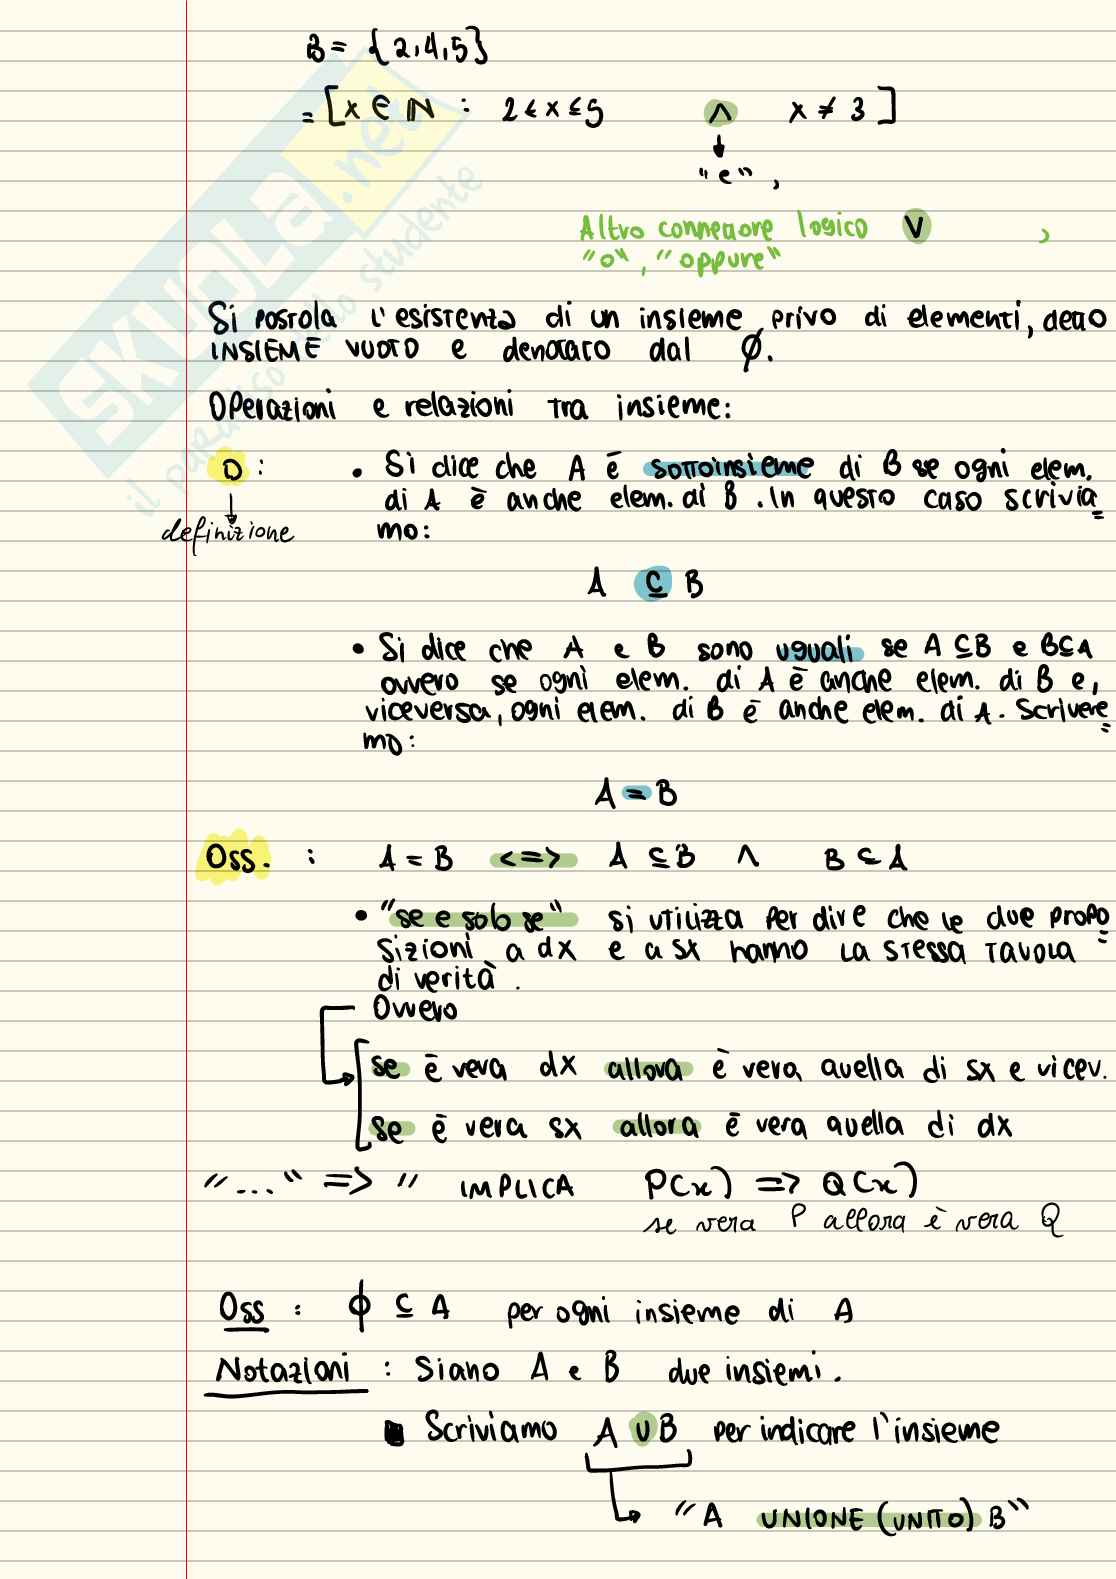 B = {2,4,5}
= [x ∈ ℕ : 2 ≤ x ≤ 5 ∧ x ≠ 3]
"e",
Altro connettore logico ∨ ,
"o", "oppure"
Si postola l'esistenza di un insieme privo di elementi, detto
INSIEME VUOTO e denotato dal ϕ.
Operazioni e relazioni tra insieme:
D : • Si dice che A è sottoinsieme di B se ogni elem.
di A è anche elem. di B. In questo caso scrivia=
definizione
mo:
A ⊆ B
• Si dice che A e B sono uguali se A ⊆ B e B ⊆ A
ovvero se ogni elem. di A è anche elem. di B e,
viceversa, ogni elem. di B è anche elem. di A. Scrivere=
mo:
A = B
Oss. : A = B <=> A ⊆ B ∧ B ⊆ A
• "se e solo se" si utilizza per dire che le due propo=
sizioni a dx e a sx hanno la stessa tavola
di verità.
Ovvero
se è vera dx allora è vera quella di sx e vicev.
se è vera sx allora è vera quella di dx
"..." => " IMPLICA P(x) => Q(x)
se vera P allora è vera Q
Oss : ϕ ⊆ A per ogni insieme di A
Notazioni : Siano A e B due insiemi.
■ Scriviamo A ∪ B per indicare l'insieme
"A UNIONE (UNITO) B"
SKUOLA.net
il paradiso dello studente